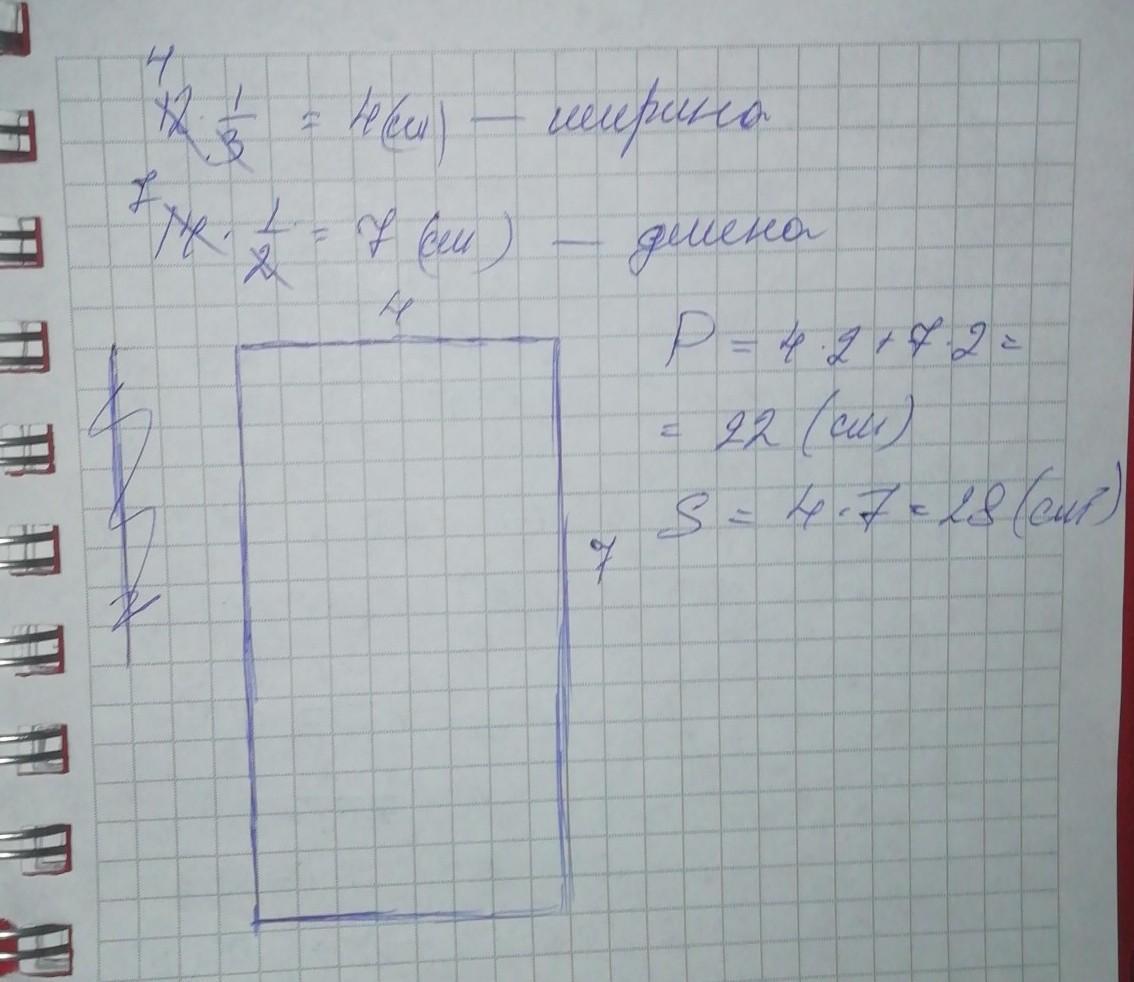 4
12 · 1/3 = 4 (см) — ширина
7
14 · 1/2 = 7 (см) — длина
4
P = 4 · 2 + 7 · 2 =
= 22 (см)
S = 4 · 7 = 28 (см²)
7